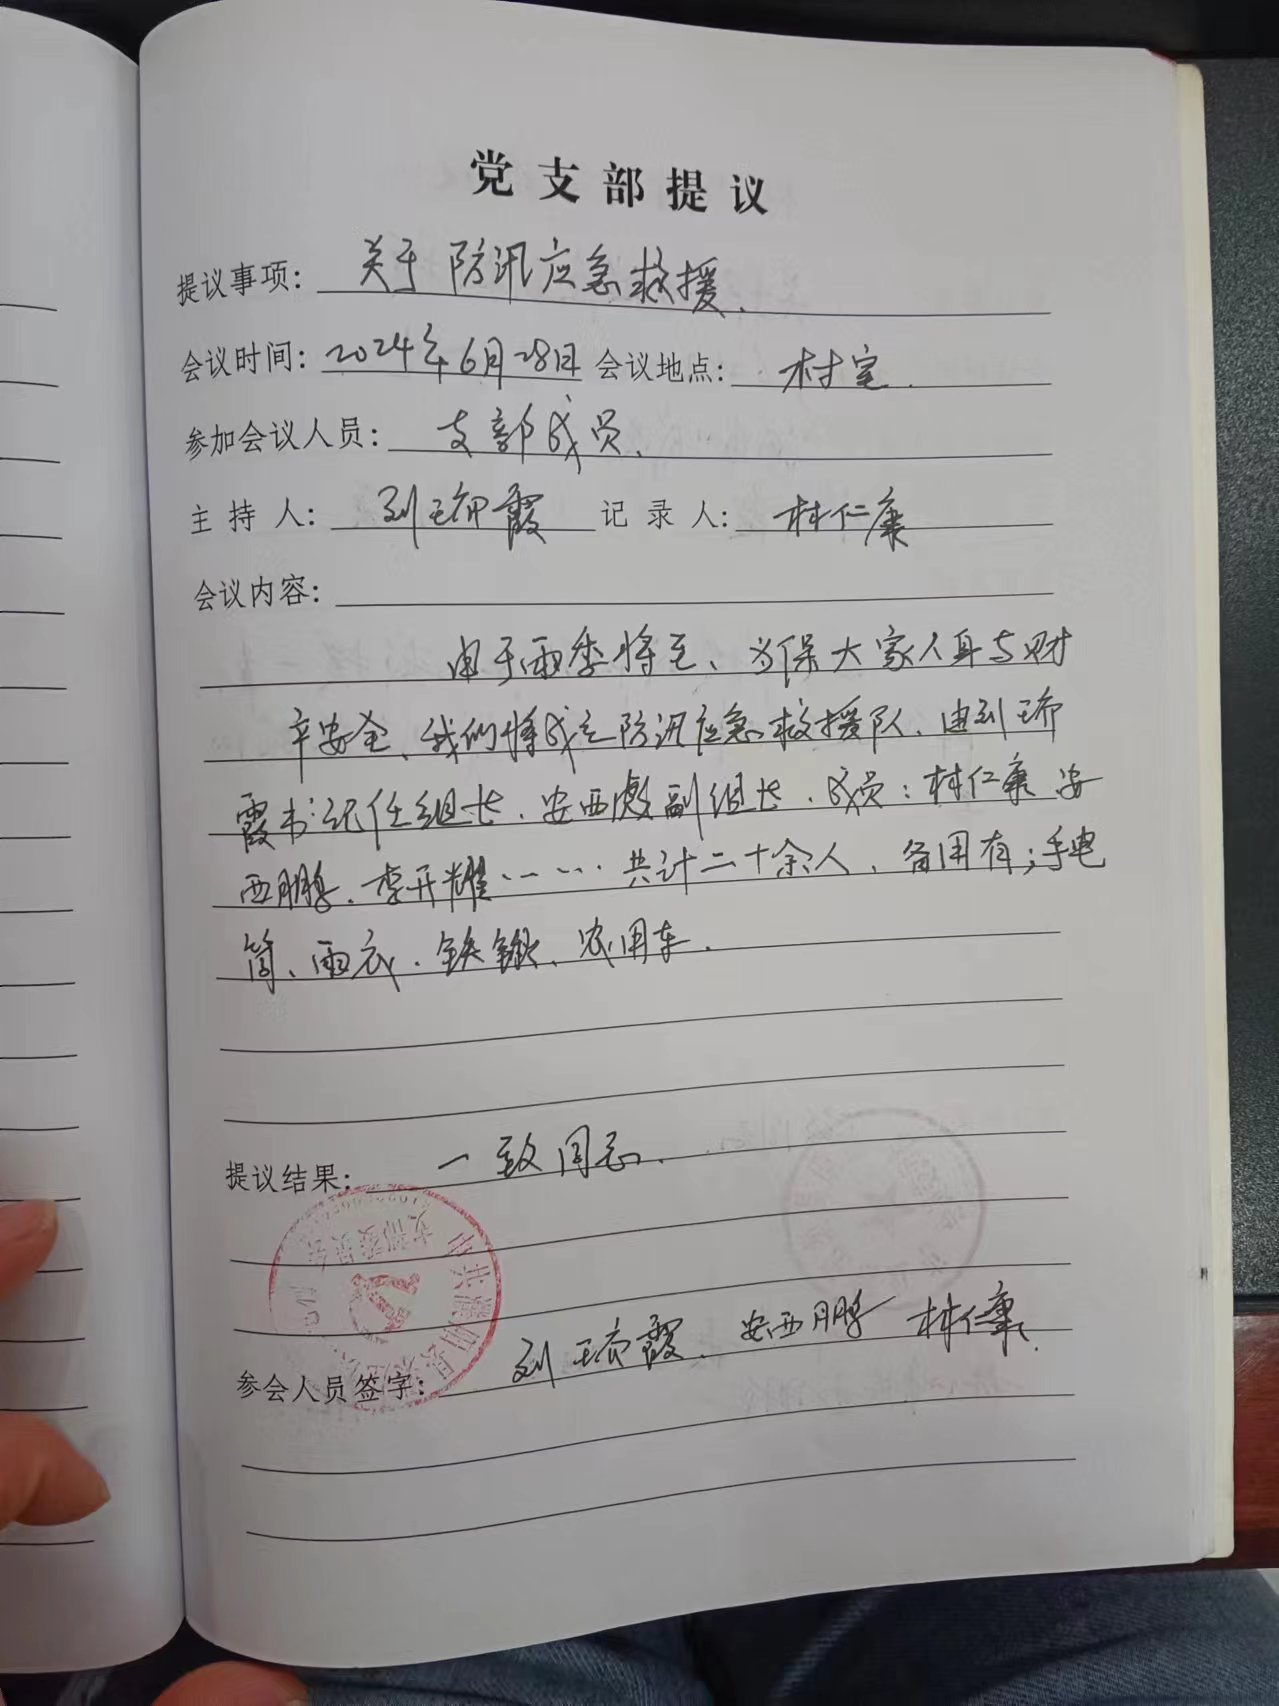 党支部提议
提议事项: 关于防汛应急救援.
会议时间: 2024年6月28日 会议地点: 村室.
参加会议人员: 支部成员.
主持人: 刘瑜霞 记录人: 林仁康
会议内容:
由于雨季将至、为保大家人身与财
产安全、我们将成立防汛应急救援队、由刘
霞书记任组长.安西彪副组长.成员:林仁康 安
西鹏、李开耀……共计二十余人、备用有;手电
筒、雨衣.铁锹、农用车.
提议结果: 一致同意.
支部委员会
参会人员签字: 刘 霞. 安西鹏 林仁康.